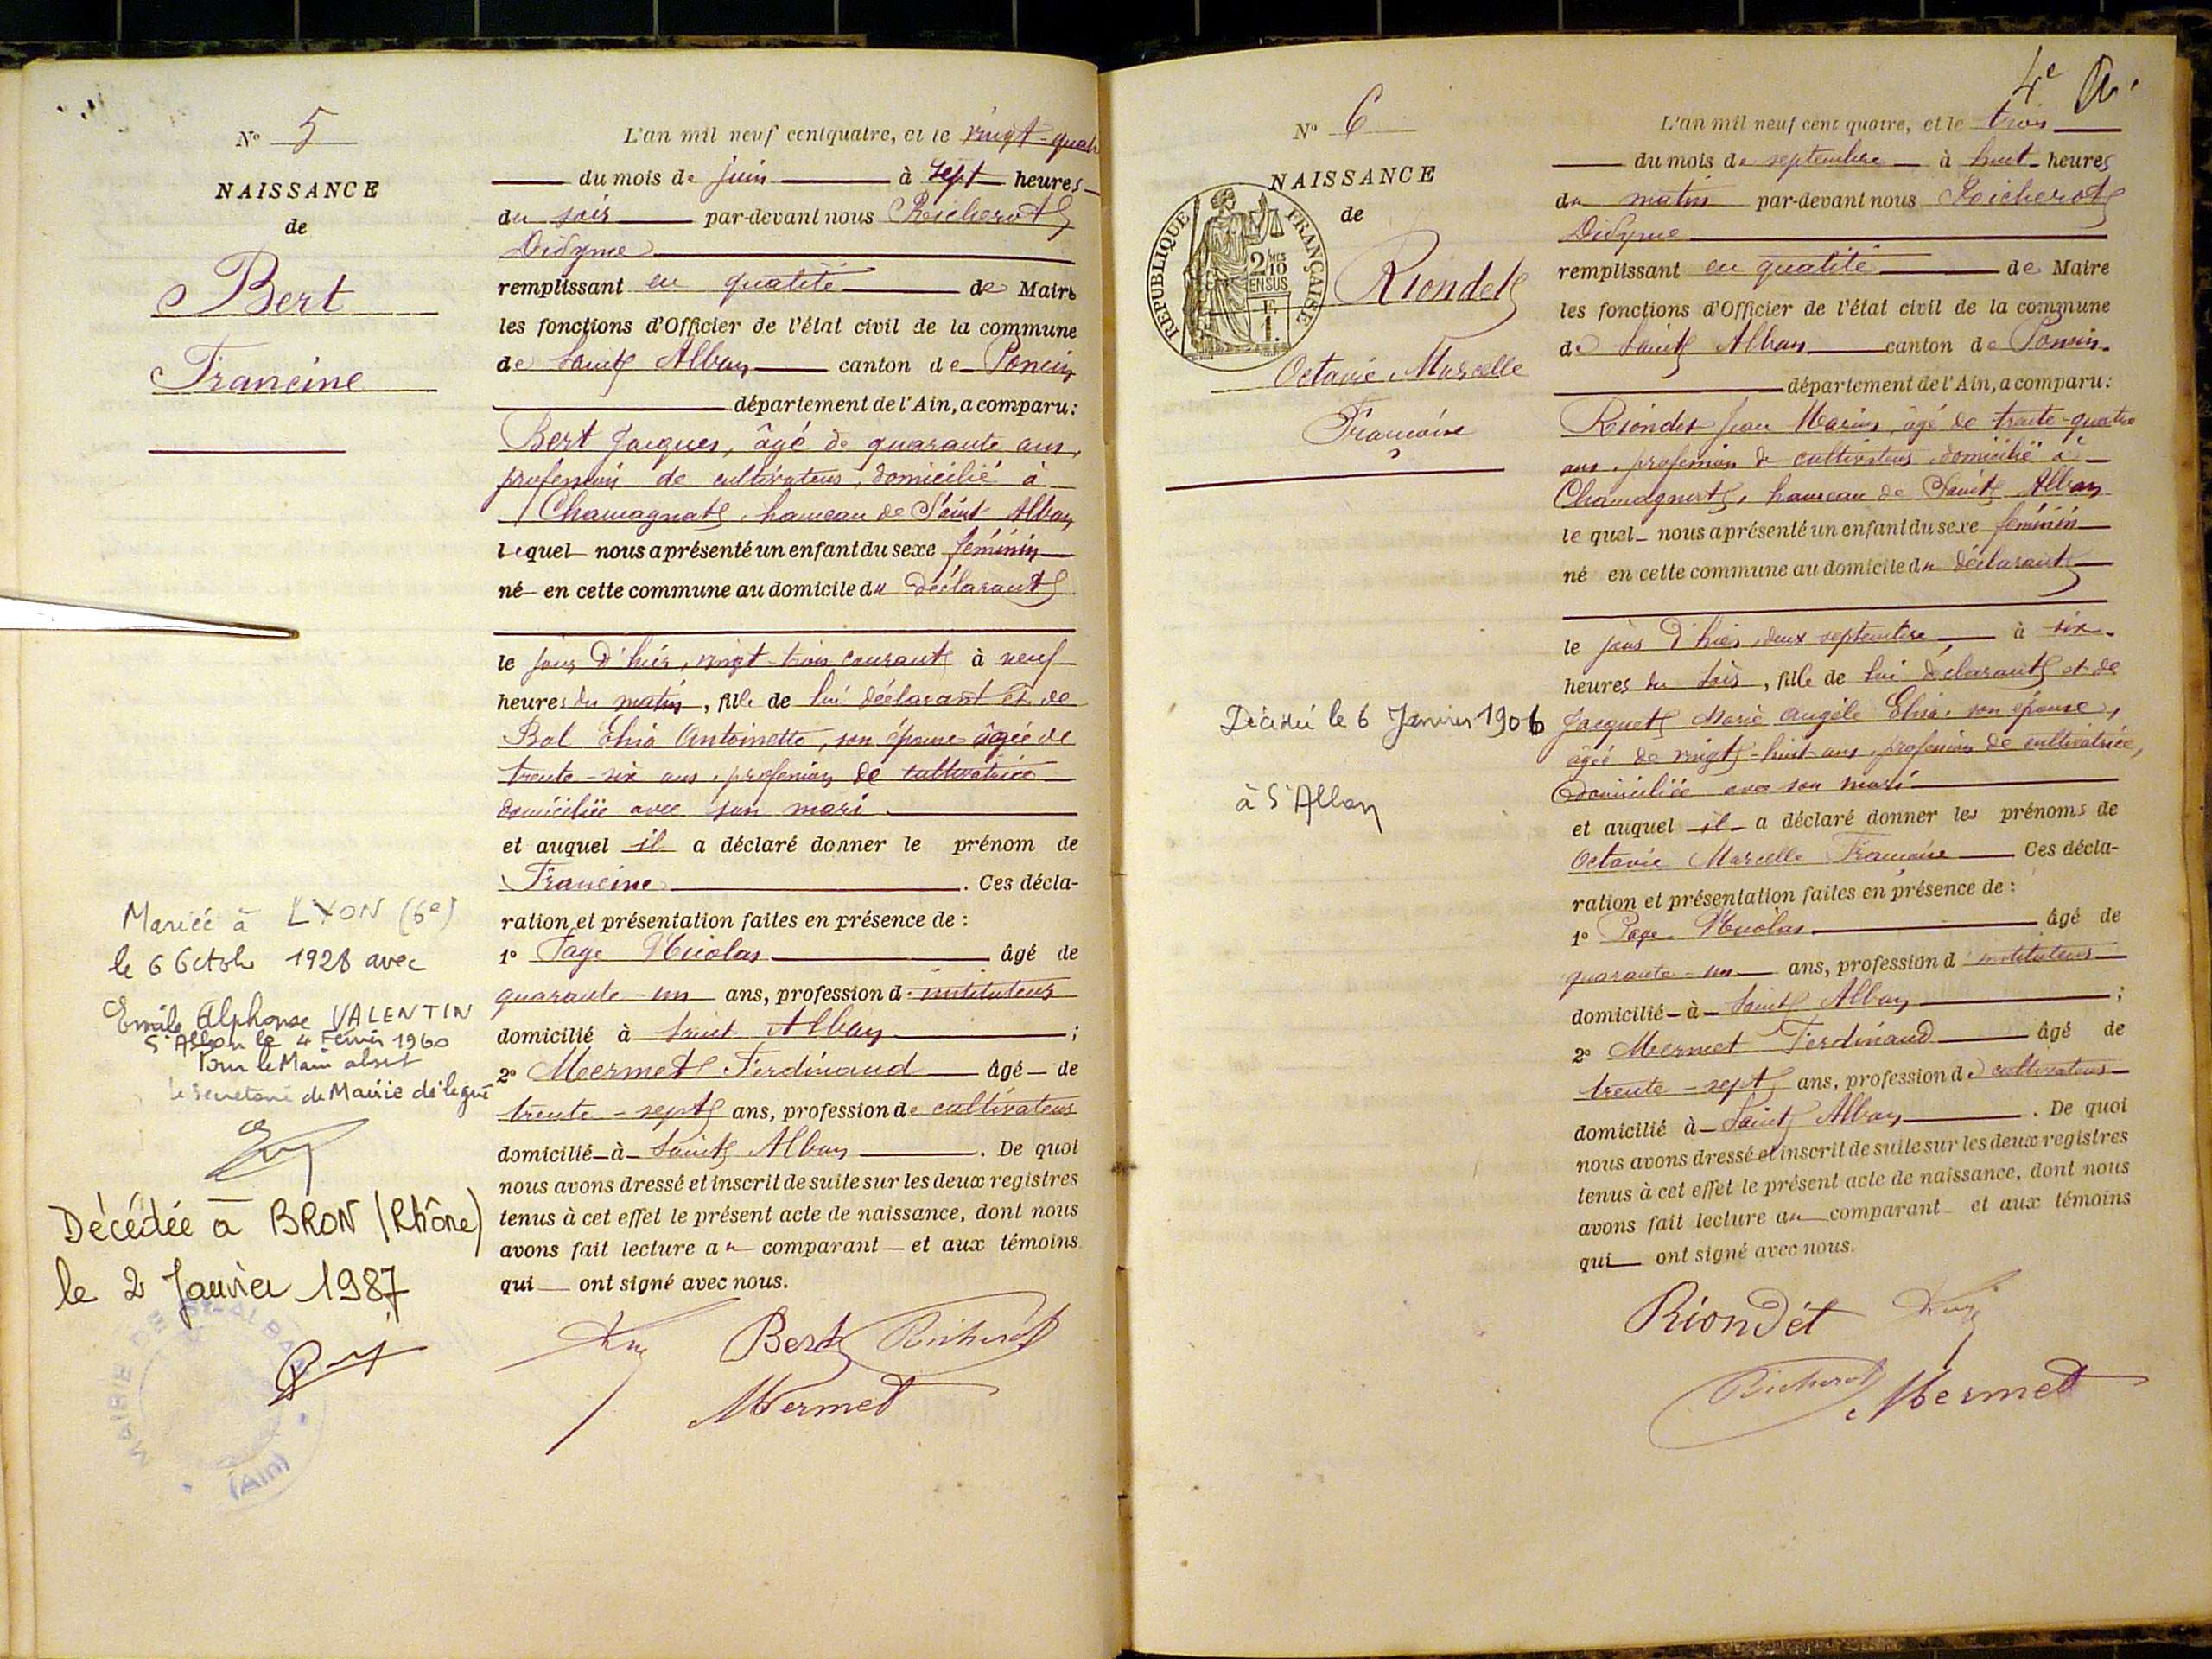 N° 5
NAISSANCE
de
Bert
Francine
L'an mil neuf cent quatre, et le vingt-quatr
du mois de juin à sept heures
du soir par-devant nous Richerot
Didyme
remplissant en qualité de Maire
les fonctions d'Officier de l'état civil de la commune
de Saint Alban canton de Poncin
département de l'Ain, a comparu:
Bert Jacques, âgé de quarante ans,
profession de cultivateur, domicilié à
Chamagnat, hameau de Saint Alban
lequel nous a présenté un enfant du sexe féminin
né en cette commune au domicile du déclarant
le jour d'hier, vingt-trois courant à neuf
heures du matin, fille de lui déclarant et de
Bal Antoinette, son épouse âgée de
trente-six ans, profession de cultivatrice
domiciliée avec son mari.
et auquel il a déclaré donner le prénom de
Francine. Ces décla-
ration et présentation faites en présence de :
1° Page Nicolas âgé de
quarante-un ans, profession d'instituteur
domicilié à Saint Alban ;
2° Mermet Ferdinand âgé de
trente-sept ans, profession de cultivateur
domicilié à Saint Alban. De quoi
nous avons dressé et inscrit de suite sur les deux registres
tenus à cet effet le présent acte de naissance, dont nous
avons fait lecture au comparant et aux témoins
qui ont signé avec nous.
Bert Richerot
Mermet
Mariée à LYON (6e)
le 6 Octobre 1928 avec
Emile Alphonse VALENTIN
St Alban le 4 Février 1960
Pour le Maire absent
le Secrétaire de Mairie délégué
Décédée à BRON (Rhône)
le 2 Janvier 1987
MAIRIE DE ST-ALBAN
(Ain)
4e
N° 6
NAISSANCE
de
REPUBLIQUE FRANÇAISE
2/10 EN SUS
F.
1.
Riondet
Octavie Marcelle
Françoise
L'an mil neuf cent quatre, et le trois
du mois de septembre à huit heures
du matin par-devant nous Richerot
Didyme
remplissant en qualité de Maire
les fonctions d'Officier de l'état civil de la commune
de Saint Alban canton de Poncin.
département de l'Ain, a comparu:
Riondet Jean Marius, âgé de trente-quatre
ans, profession de cultivateur, domicilié à
Chamagnat, hameau de Saint Alban
lequel nous a présenté un enfant du sexe féminin
né en cette commune au domicile du déclarant
le jour d'hier, deux septembre à six
heures du soir, fille de lui déclarant et de
Jacquet Marie Angèle Elisa, son épouse,
âgée de vingt-huit ans, profession de cultivatrice,
domiciliée avec son mari
et auquel il a déclaré donner les prénoms de
Octavie Marcelle Françoise Ces décla-
ration et présentation faites en présence de :
1° Page Nicolas âgé de
quarante-un ans, profession d'instituteur
domicilié à Saint Alban ;
2° Mermet Ferdinand âgé de
trente-sept ans, profession de cultivateur
domicilié à Saint Alban. De quoi
nous avons dressé et inscrit de suite sur les deux registres
tenus à cet effet le présent acte de naissance, dont nous
avons fait lecture au comparant et aux témoins
qui ont signé avec nous.
Riondet
Richerot Mermet
Décédée le 6 Janvier 1906
à St Alban